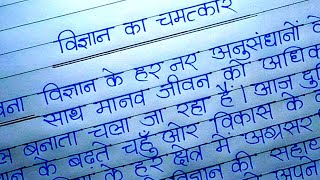 विज्ञान का चमत्कार
विज्ञान के हर नए अनुसंधानों
साथ मानव जीवन को अधिक
बनाता चला जा रहा है। आज
के बढ़ते चहुँ ओर विकास के
के हर क्षेत्र में अग्रसर
विज्ञान की